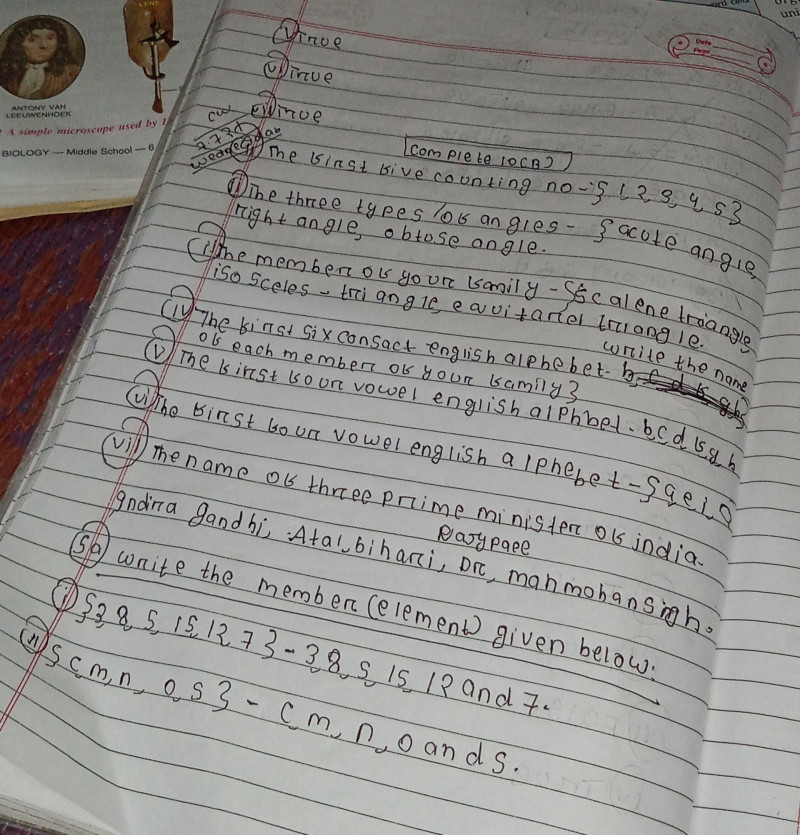 LENS
ANTONY VAN
LEEUWENHOEK
A simple microscope used by
BIOLOGY — Middle School — 6
uni
Date
Page
(v) Tinue
(vi) Tinue
(vii) Tinue
CW
7.7.21
wednesday
Complete 10(B)
(i) The first five counting no - {1, 2, 3, 4, 5}
(ii) The three types of angles - {acute angle,
right angle, obtose angle.
(iii) The member of your family - {Scalene triangle
isosceles - triangle, equitarlel triangle.
write the name
(iv) The first six consact english alphebet.
of each member of your family}
(v) The first four vowel english alphbet. b,c,d,f,g,h
(vi) The first four vowel english alphebet - {a,e,i,o
(vii) The name of three prime minister of india.
Indira gandhi, Atal, bihari, Dr, manmohan singh.
Bajypaee
5a) write the member (element) given below:
(i) {3, 8, 5, 15, 12, 7} - 3, 8, 5, 15, 12 and 7.
(ii) {c, m, n, o, s} - c, m, n, o and s.